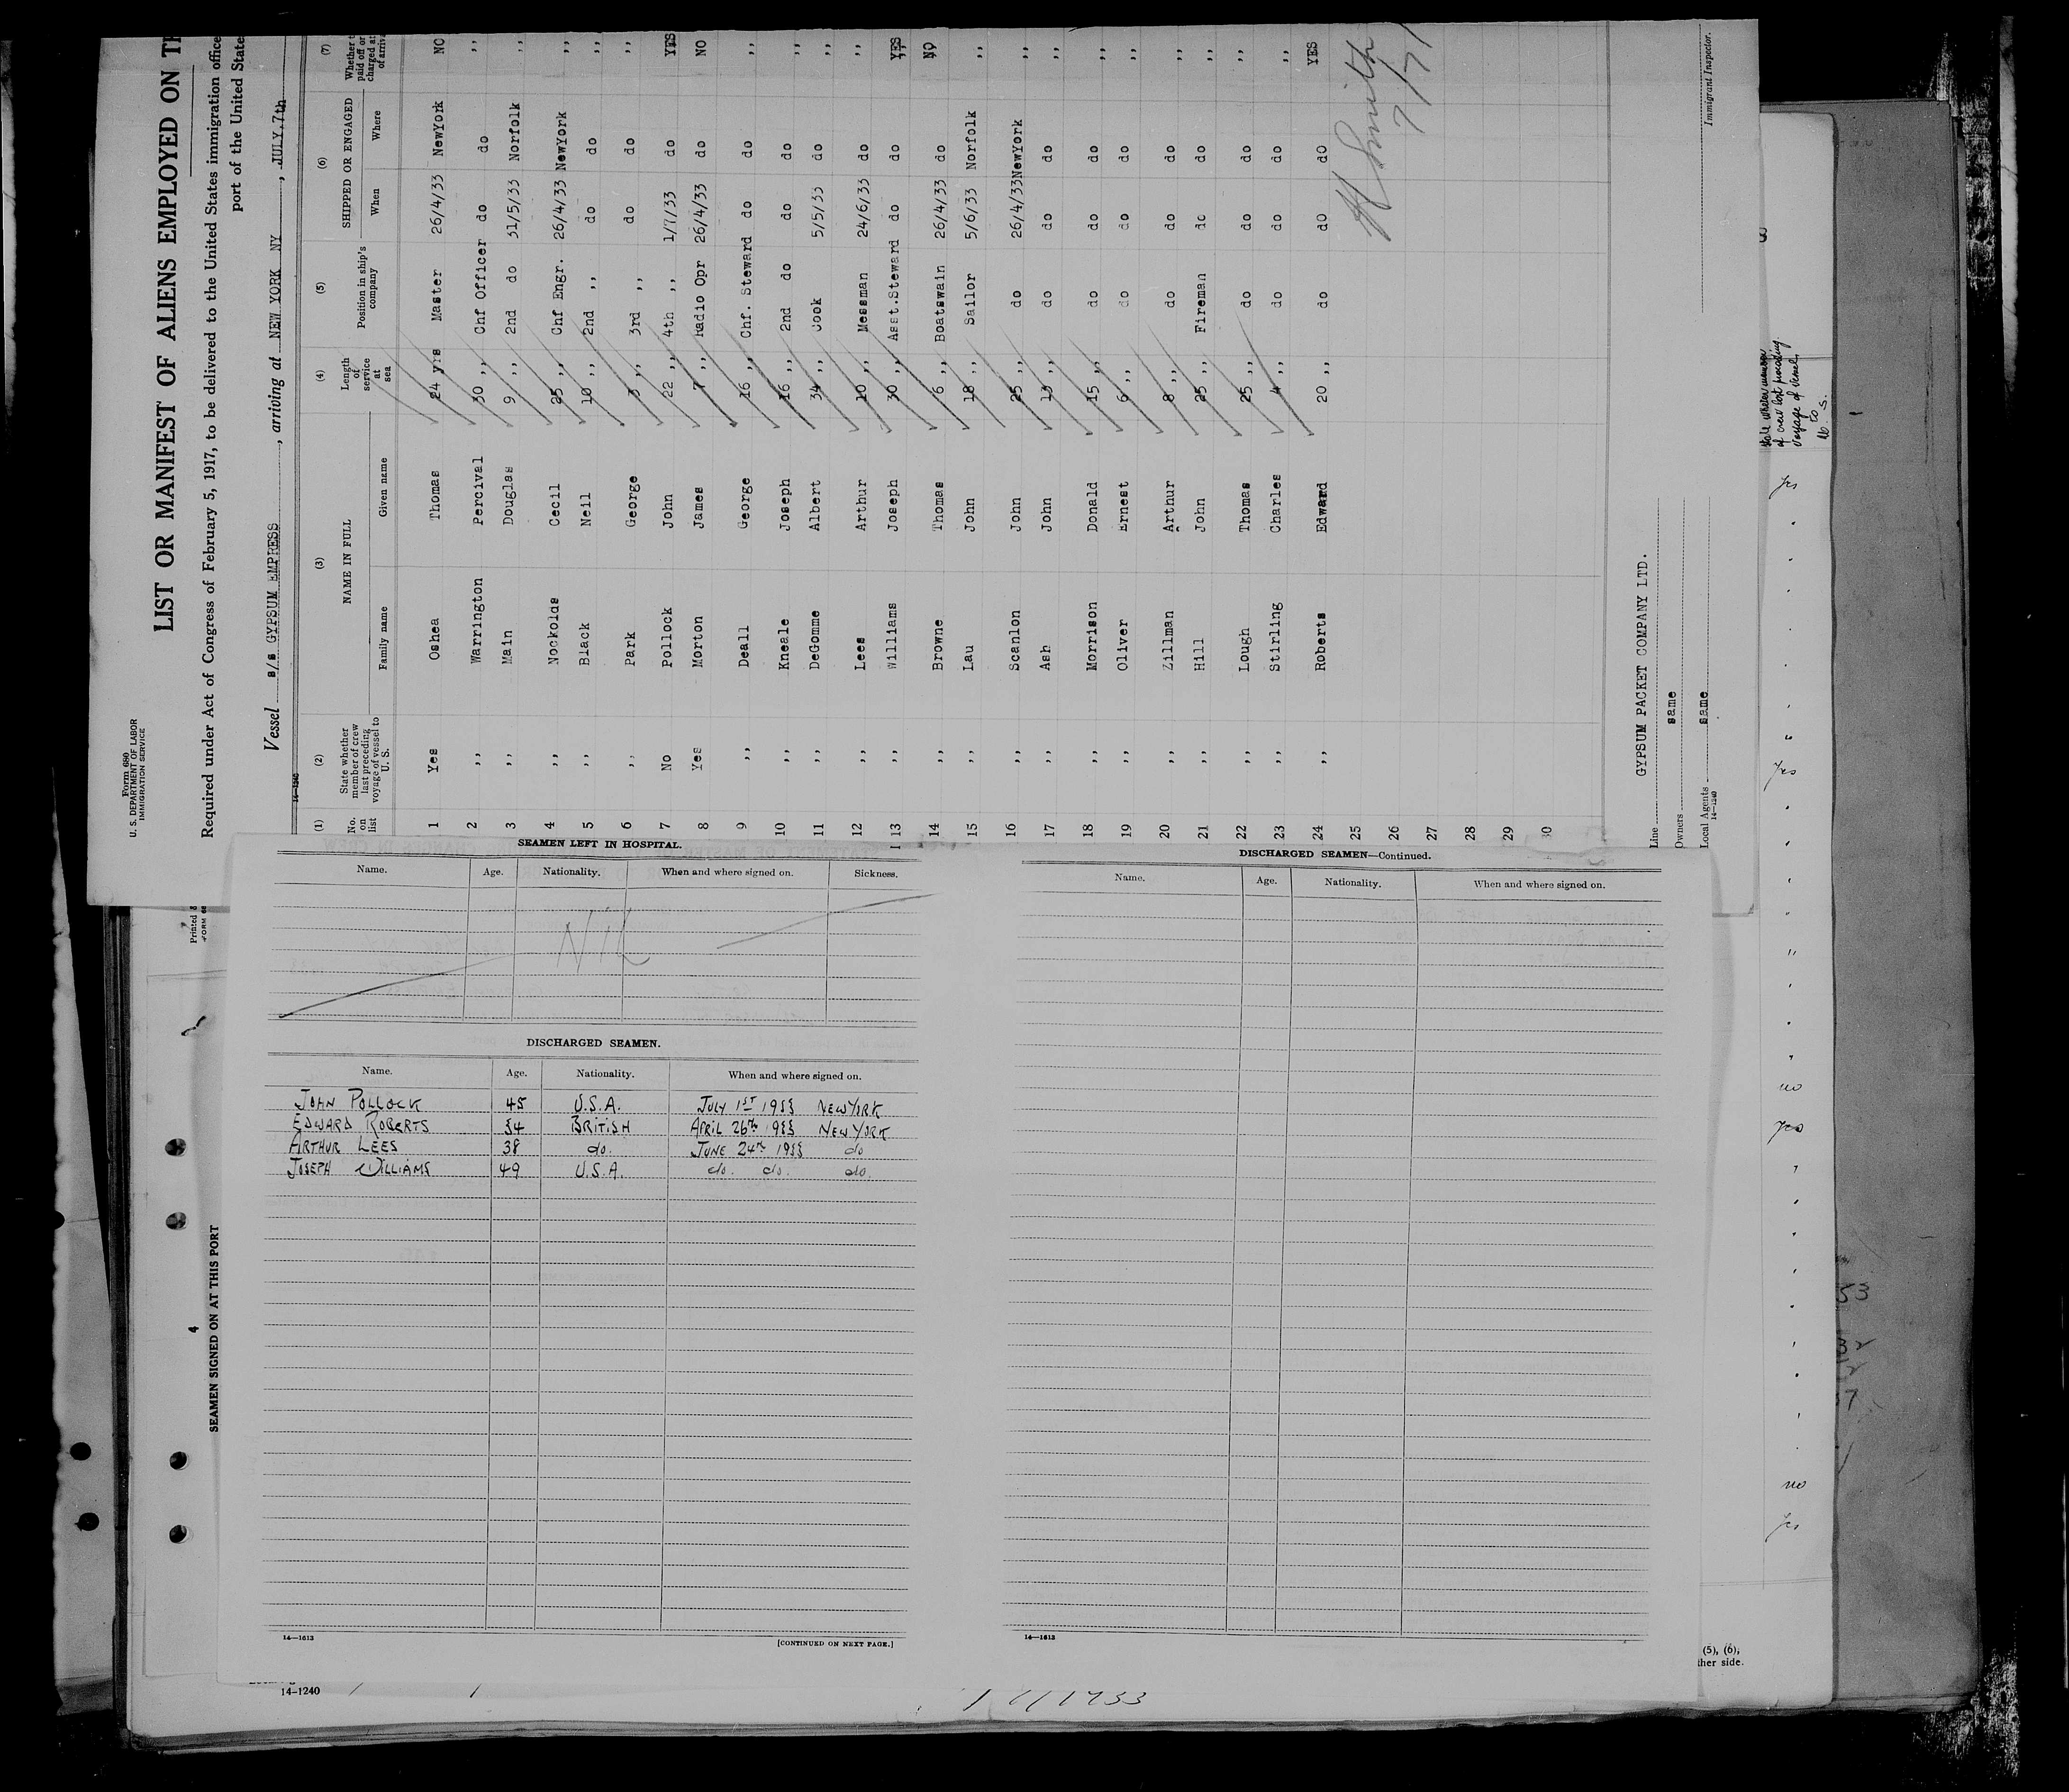 Form 680
U. S. DEPARTMENT OF LABOR
IMMIGRATION SERVICE
LIST OR MANIFEST OF ALIENS EMPLOYED ON
Required under Act of Congress of February 5, 1917, to be delivered to the United States immigration office
port of the United State
Vessel s/s GYPSUM EMPRESS, arriving at NEW YORK NY, JULY.7th
14-1240
(1) (2) (3) (4) (5) (6) (7)
No. on list
State whether member of crew last preceding voyage of vessel to U. S.
NAME IN FULL
Family name Given name
Length of service at sea
Position in ship's company
SHIPPED OR ENGAGED
When Where
Whether paid off or charged at of arriva
1 Yes Oshea Thomas 24 yrs Master 26/4/33 NewYork NO
2 ,, Warrington Percival 30 ,, Chf Officer do do ,,
3 ,, Main Douglas 9 ,, 2nd do 31/5/33 Norfolk ,,
4 ,, Nockolds Cecil 25 ,, Chf Engr. 26/4/33 NewYork ,,
5 ,, Black Neil 10 ,, 2nd ,, do do ,,
6 ,, Park George 3 ,, 3rd ,, do do ,,
7 No Pollock John 22 ,, 4th ,, 1/7/33 do YES
8 Yes Morton James 7 ,, Radio Opr 26/4/33 do NO
9 ,, Deall George 16 ,, Chf. Steward do do ,,
10 ,, Kneale Joseph 16 ,, 2nd do do do ,,
11 ,, DeGomme Albert 34 ,, Cook 5/5/33 do ,,
12 ,, Lees Arthur 10 ,, Messman 24/6/33 do ,,
13 ,, Williams Joseph 30 ,, Asst.Steward do do YES
14 ,, Browne Thomas 6 ,, Boatswain 26/4/33 do NO
15 ,, Lau John 18 ,, Sailor 5/6/33 Norfolk ,,
16 ,, Scanlon John 25 ,, do 26/4/33 NewYork ,,
17 ,, Ash John 13 ,, do do do ,,
18 ,, Morrison Donald 15 ,, do do do ,,
19 ,, Oliver Ernest 6 ,, do do do ,,
20 ,, Zillman Arthur 8 ,, do do do ,,
21 ,, Hill John 25 ,, Fireman do do ,,
22 ,, Lough Thomas 25 ,, do do do ,,
23 ,, Stirling Charles 4 ,, do do do ,,
24 ,, Roberts Edward 20 ,, do do do YES
25
26
27
28
29
30
Smith
7/7/
Line GYPSUM PACKET COMPANY LTD.
Owners same
Local Agents same
14-1240
Immigrant Inspector.
SEAMEN LEFT IN HOSPITAL.
Name. Age. Nationality. When and where signed on. Sickness.
NIL
DISCHARGED SEAMEN.
Name. Age. Nationality. When and where signed on.
JOHN POLLOCK 45 U.S.A. JULY 1ST 1933 NEW YORK
EDWARD ROBERTS 34 BRITISH APRIL 26TH 1933 NEW YORK
ARTHUR LEES 38 do. JUNE 24TH 1933 do
JOSEPH WILLIAMS 49 U.S.A. do. do. do.
14—1613
[CONTINUED ON NEXT PAGE.]
DISCHARGED SEAMEN—Continued.
Name. Age. Nationality. When and where signed on.
14—1613
4
SEAMEN SIGNED ON AT THIS PORT
14-1240
State whether member of crew last preceding voyage of vessel to U. S.
yes
yes
no
yes
no
yes
(5), (6),
ther side.